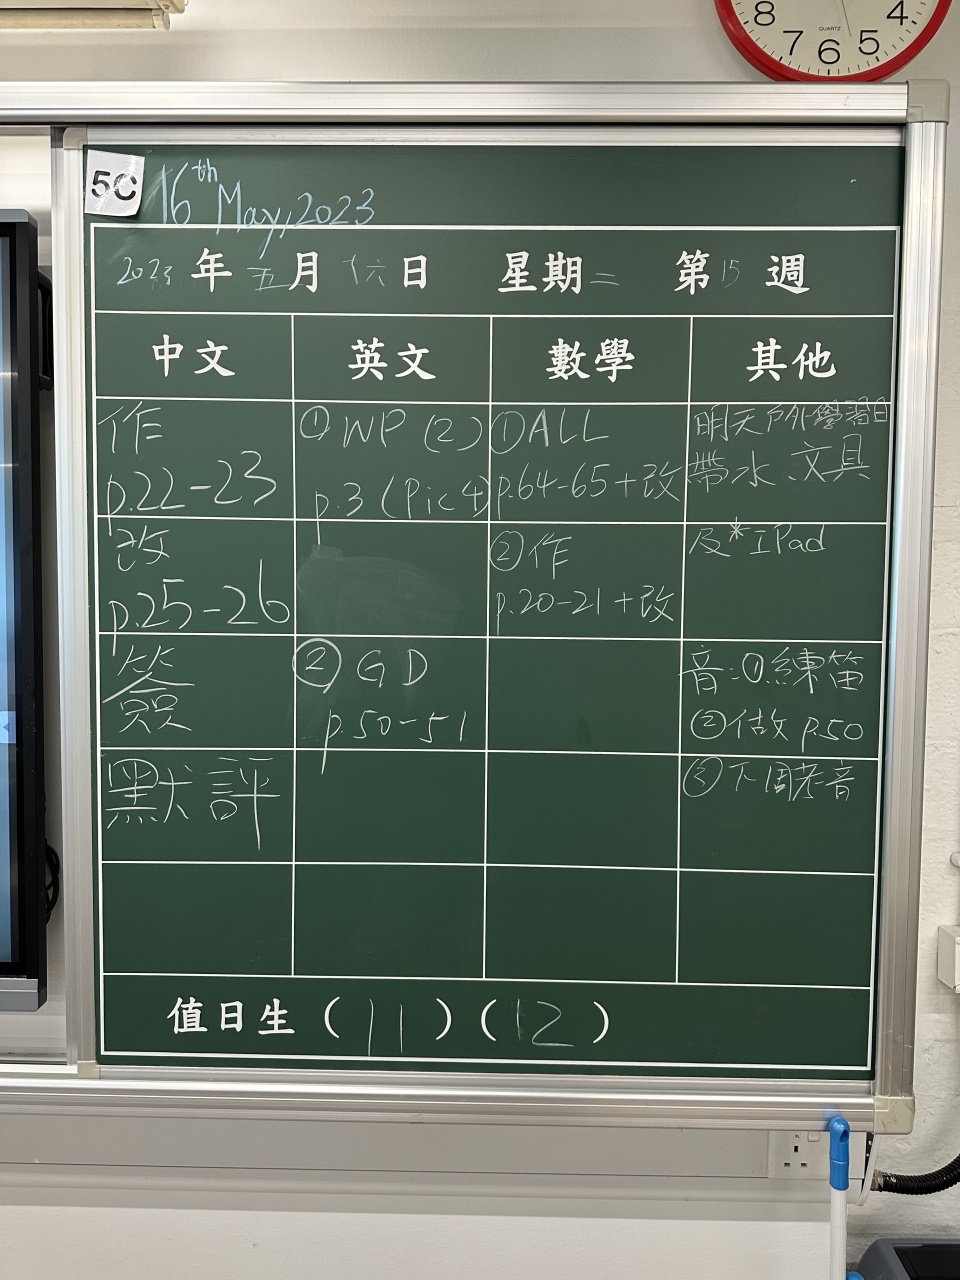 8 7 6 5 4
QUARTZ
5C
16th May, 2023
2023年五月十六日 星期二 第15週
中文 英文 數學 其他
作
p.22-23
改
p.25-26
簽
默評
① WP (2)
p.3 (Pic 4)
② GD
p.50-51
①ALL
p.64-65+改
②作
p.20-21+改
明天戶外學習日
帶水、文具
及*IPad
音:①練笛
②做 p.50
③下周考音
值日生 (11)(12)